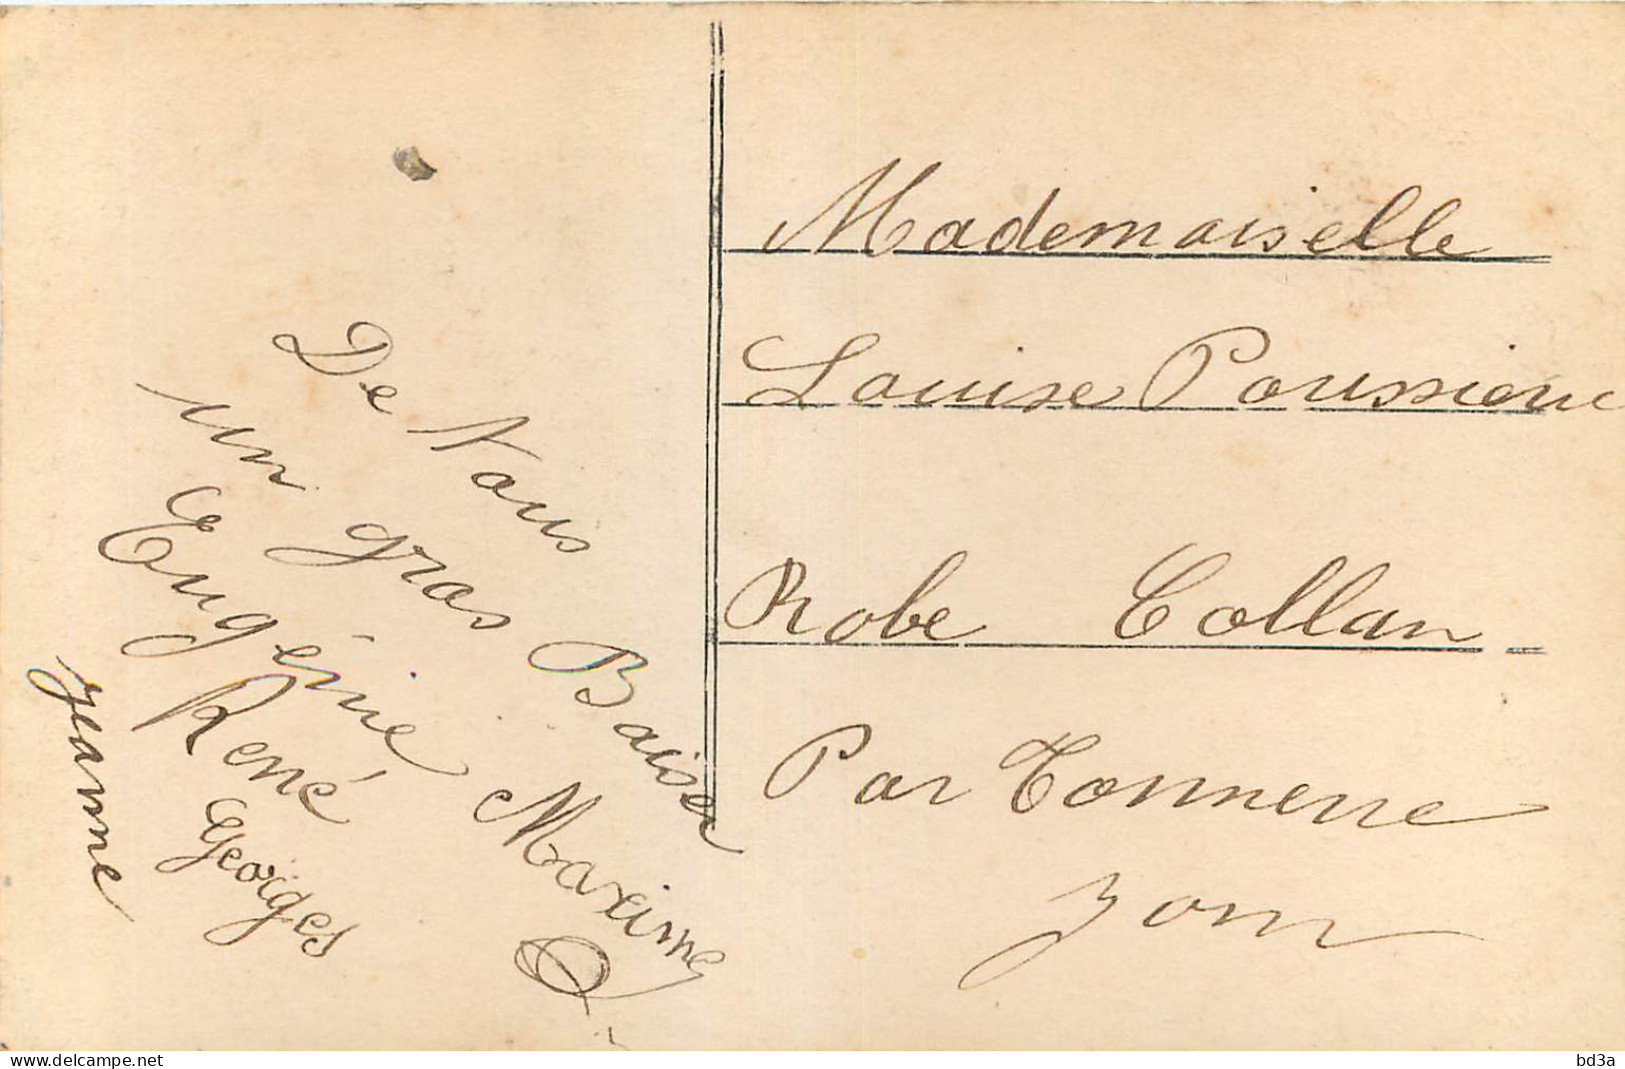 De Nous
un gros Baiser
Eugénie Maxime
René
Georges
Jeanne
Mademoiselle
Louise
Robe Collan
Par Tonnerre
Yonn
www.delcampe.net
bd3a